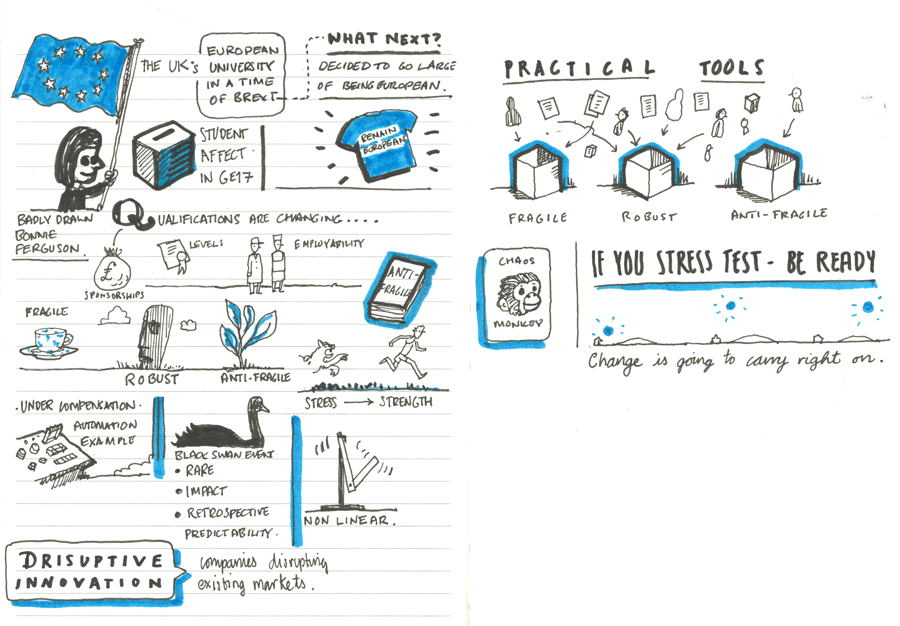 THE UK'S
EUROPEAN
UNIVERSITY
IN A TIME
OF BREXIT
WHAT NEXT?
DECIDED TO GO LARGE
OF BEING EUROPEAN.
STUDENT
AFFECT
IN GE17
REMAIN
EUROPEAN
BADLY DRAWN
BONNIE
FERGUSON.
QUALIFICATIONS ARE CHANGING....
£
SPONSORSHIPS
LEVELS
EMPLOYABILITY
ANTI-
FRAGILE
FRAGILE
ROBUST
ANTI-FRAGILE
STRESS → STRENGTH
. UNDER COMPENSATION.
AUTOMATION
EXAMPLE
BLACK SWAN EVENT
• RARE
• IMPACT
• RETROSPECTIVE
PREDICTABILITY.
NON LINEAR.
DRISUPTIVE
INNOVATION
companies disrupting
existing markets.
PRACTICAL TOOLS
FRAGILE
ROBUST
ANTI-FRAGILE
CHAOS
MONKEY
IF YOU STRESS TEST - BE READY
Change is going to carry right on.